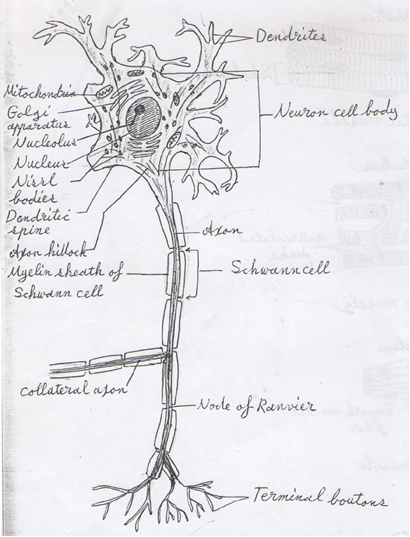 Dendrites
Mitochondria
Golgi
apparatus
Nucleolus
Nucleus
Nissl
bodies
Dendritic
spine
Axon hillock
Myelin sheath of
Schwann cell
Neuron cell body
Axon
Schwann cell
Collateral axon
Node of Ranvier
Terminal boutons